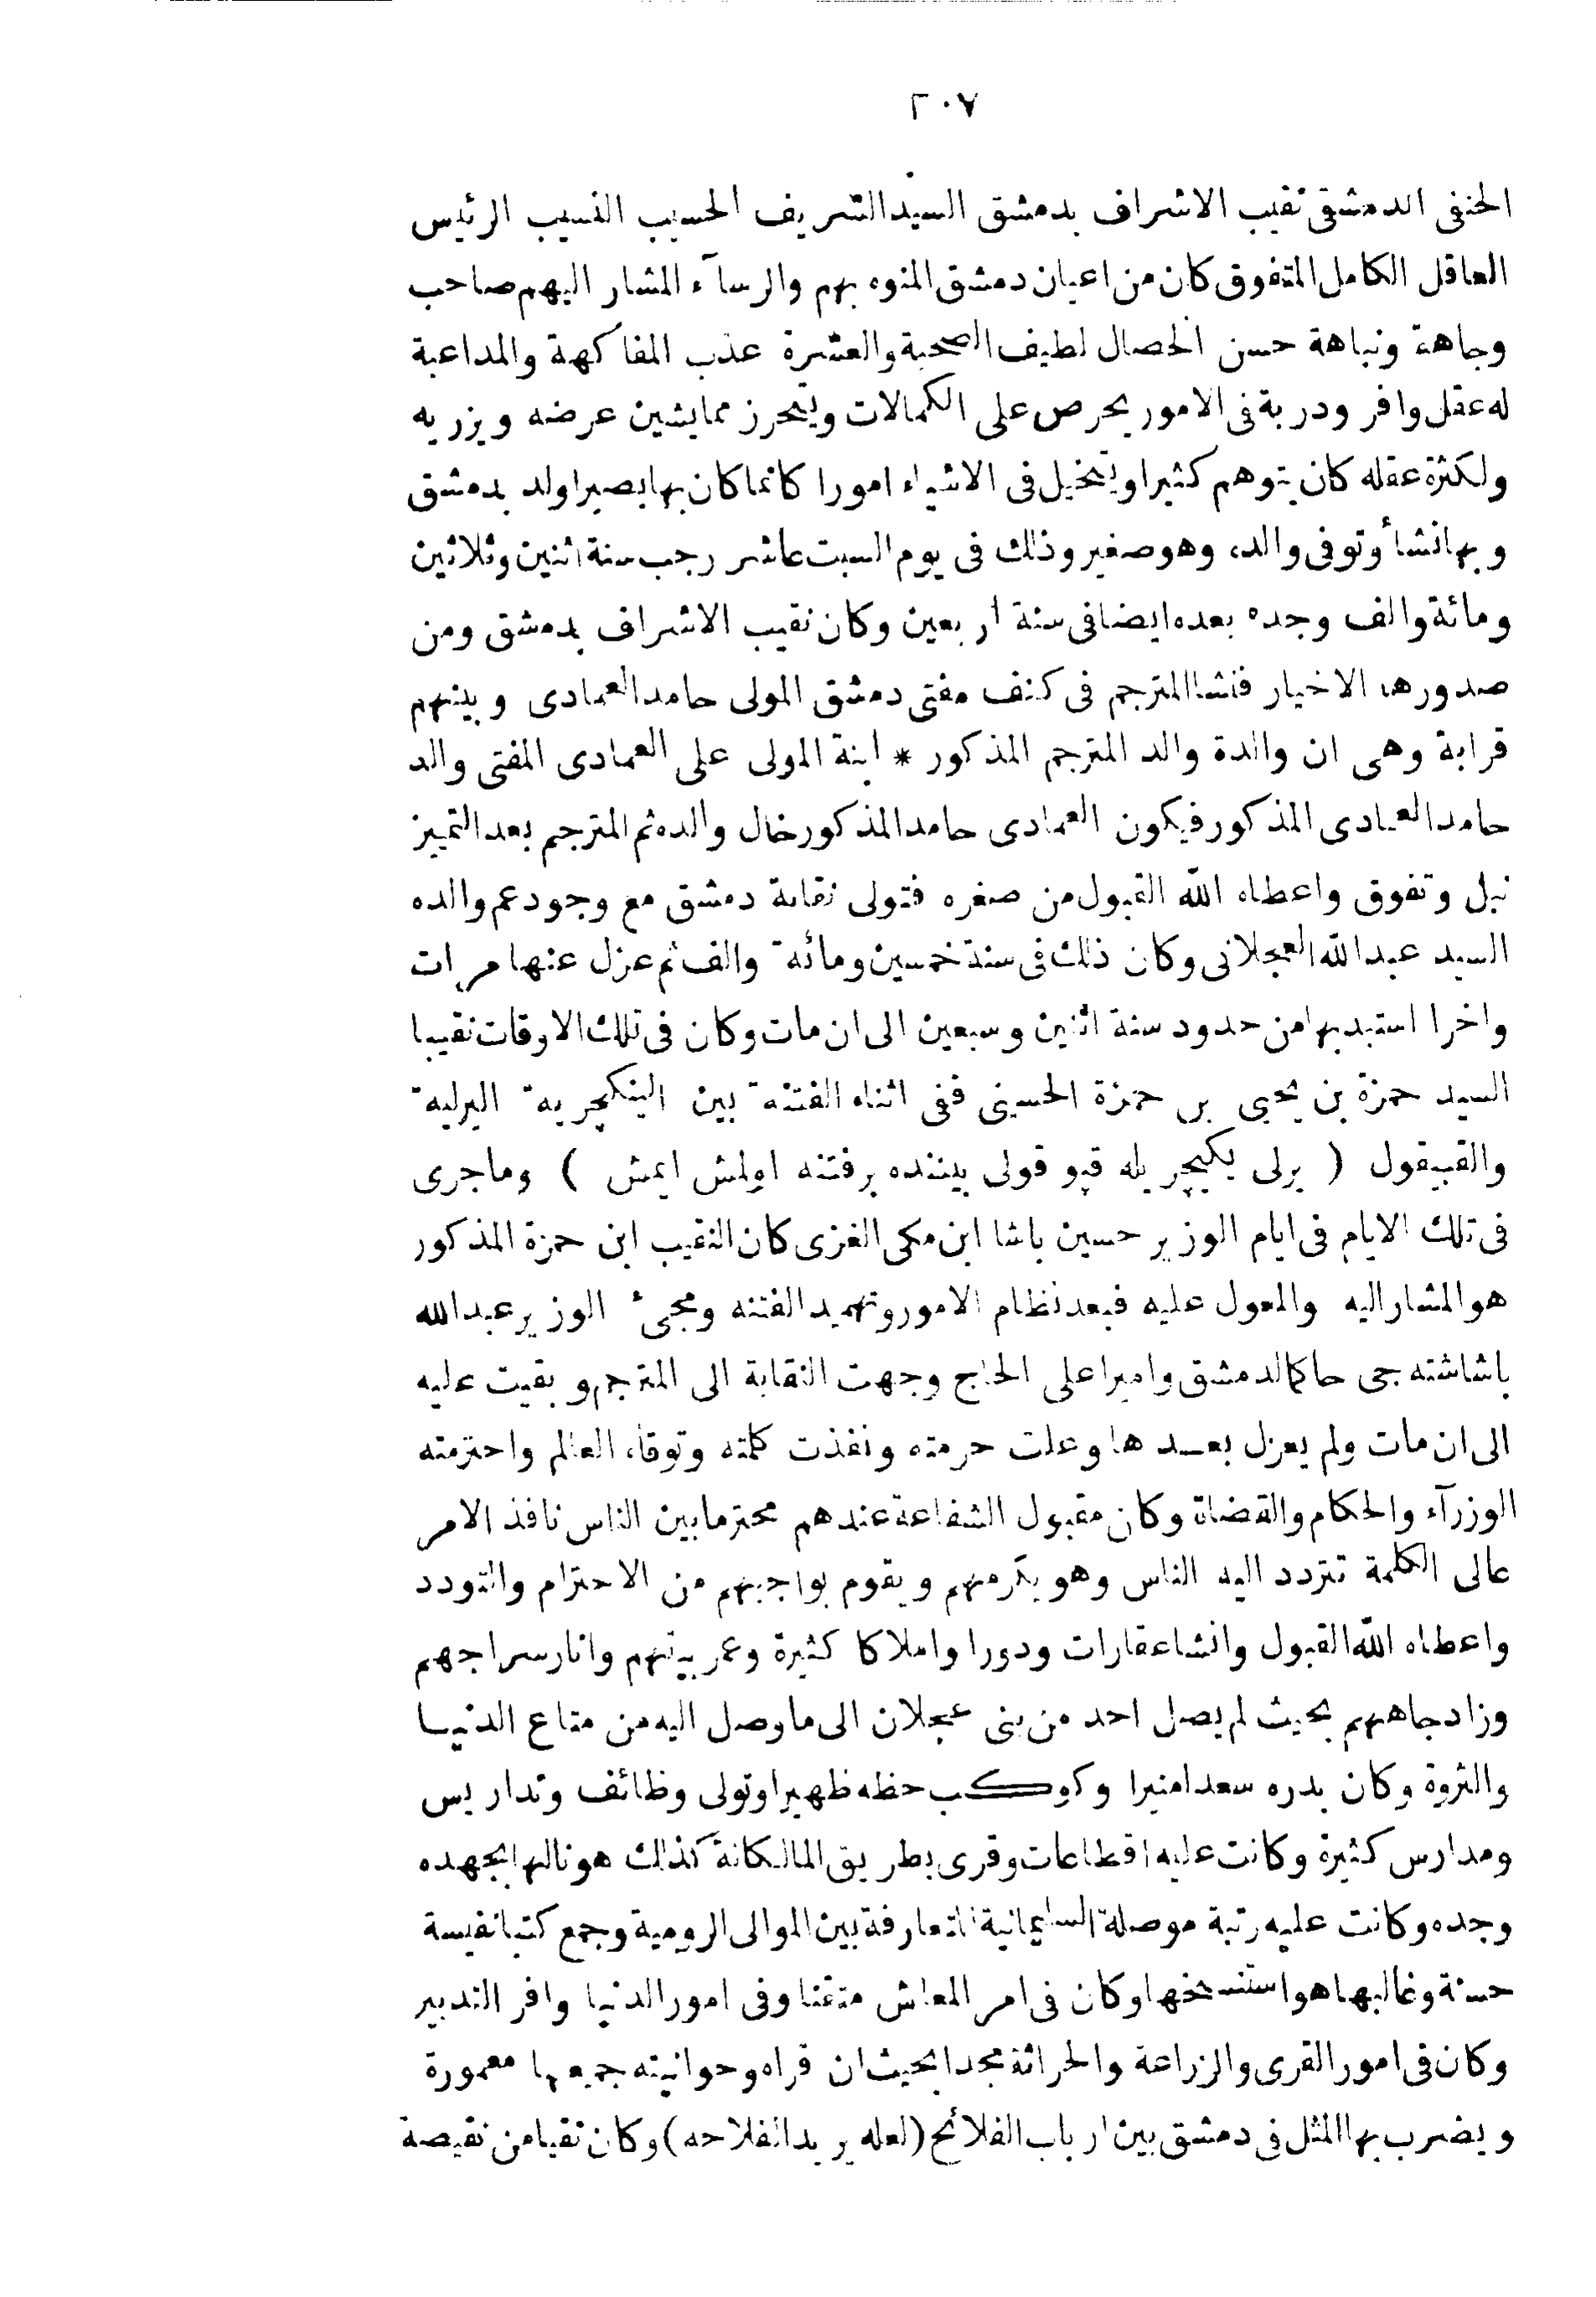 ٢٠٧
الحنفى الدمشقى نقيب الاشراف بدمشق السيد الشريف الحسيب النسيب الرئيس
العاقل الكامل المتفوق كان من اعيان دمشق المنوه بهم والرسآء المشار اليهم صاحب
وجاهة ونباهة حسن الخصال لطيف الصحبة والعشرة عذب المفاكهة والمداعبة
له عقل وافر ودربة فى الامور يحرص على الكمالات ويتحرز مما يشين عرضه ويزريه
ولكثرة عقله كان يتوهم كثيرا ويتخيل فى الاشياء امورا كانما كان بها بصيرا ولد بدمشق
وبها نشأ وتوفى والده وهو صغير وذلك فى يوم السبت عاشر رجب سنة اثنين وثلاثين
ومائة والف وجده بعده ايضا فى سنة اربعين وكان نقيب الاشراف بدمشق ومن
صدورها الاخيار فنشا المترجم فى كنف مفتى دمشق المولى حامد العمادى وبينهم
قرابة وهى ان والدة والد المترجم المذكور * ابنة المولى على العمادى المفتى والد
حامد العمادى المذكور فيكون العمادى حامد المذكور خال والده ثم المترجم بعد التمييز
نبل وتفوق واعطاه الله القبول من صغره فتولى نقابة دمشق مع وجود عم والده
السيد عبد الله العجلانى وكان ذلك فى سنة خمسين ومائة والف ثم عزل عنها مرات
واخرا استبد بها من حدود سنة اثنين وسبعين الى ان مات وكان فى تلك الاوقات نقيبا
السيد حمزة بن يحيى بن حمزة الحسينى ففى اثناء الفتنة بين الينكچرية اليرلية
والقپيقول ( يرلى يكيچريله قپو قولى بيننده برفتنه اولمش ايمش ) وماجرى
فى تلك الايام فى ايام الوزير حسين باشا ابن مكى الغزى كان النقيب ابن حمزة المذكور
هو المشار اليه والمعول عليه فبعد نظام الامور وتمهيد الفتنه ومجئ الوزير عبد الله
باشا شته جى حاكما لدمشق واميرا على الحاج وجهت النقابة الى المترجم وبقيت عليه
الى ان مات ولم يعزل بعدها وعلت حرمته ونفذت كلمته وتوقاه العالم واحترمته
الوزرآء والحكام والقضاة وكان مقبول الشفاعة عندهم محترما بين الناس نافذ الامر
عالى الكلمة تتردد اليه الناس وهو يكرمهم ويقوم بواجبهم من الاحترام والتودد
واعطاه الله القبول وانشا عقارات ودورا واملاكا كثيرة وعمر بيتهم وانار سراجهم
وزاد جاههم بحيث لم يصل احد من بنى عجلان الى ما وصل اليه من متاع الدنيا
والثروة وكان بدره سعدا منيرا وكوكب حظه ظهيرا وتولى وظائف وتداريس
ومدارس كثيرة وكانت عليه اقطاعات وقرى بطريق المالكانة كذلك هو نالها بجهده
وجده وكانت عليه رتبة موصلة السليمانية المتعارفة بين الموالى الرومية وجمع كتبا نفيسة
حسنة وغالبها هو استنسخها وكان فى امر المعاش متقنا وفى امور الدنيا وافر التدبير
وكان فى امور القرى والزراعة والحراثة مجدا بحيث ان قراه وحوانيته جميعها معمورة
ويضرب بها المثل فى دمشق بين ارباب الفلائح (لعله يريد الفلاحه) وكان نقيا من نقيصة